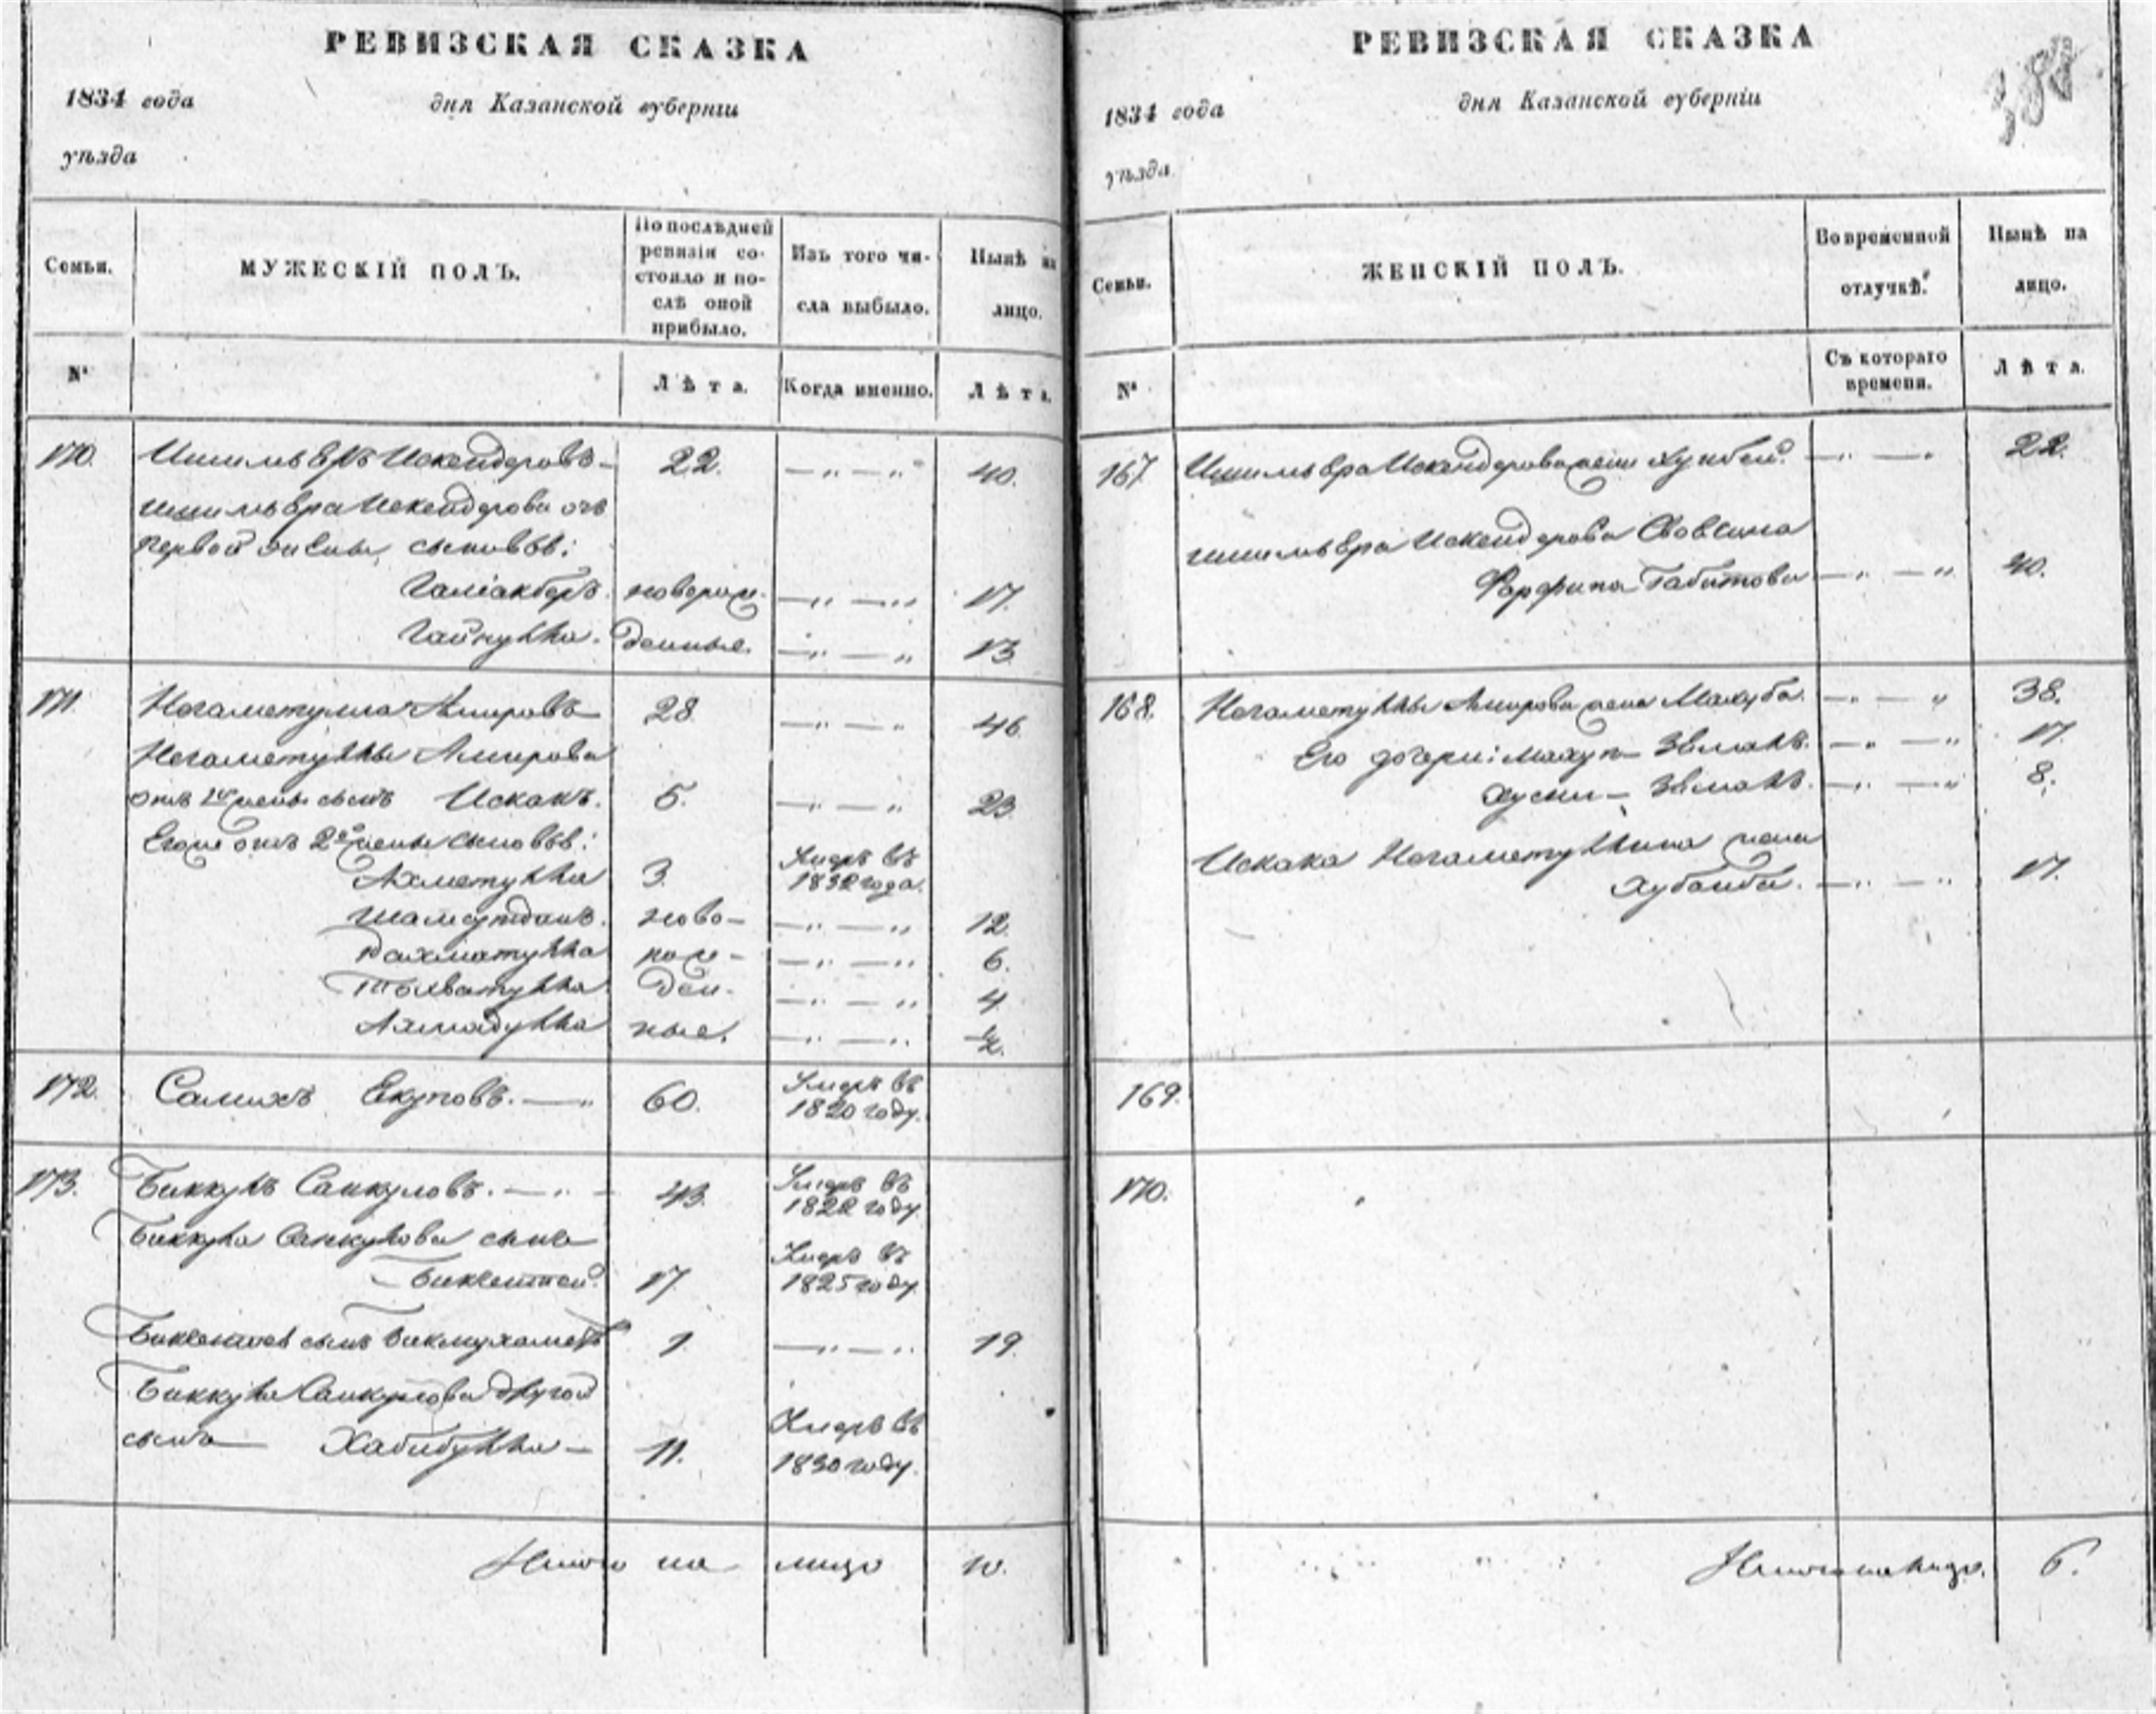 РЕВИЗСКАЯ СКАЗКА
1834 года дня Казанской губерніи
уѣзда
Семьи. МУЖЕСКІЙ ПОЛЪ. По послѣдней ревизіи состояло и послѣ оной прибыло. Изъ того числа выбыло. Нынѣ на лицо.
№ Лѣта. Когда именно. Лѣта.
170. Искендеровъ 22. 40.
Искендерова отъ
первой жены сыновья:
Галіакберъ. новорож- 17.
Гайнулла. денные. 13.
171. Негаметулла Амировъ 28. 46.
Негаметуллы Амирова
отъ 1й жены сынъ Искакъ. 5. 23.
Его же отъ 2й жены сыновья:
Ахметулла 3. Умеръ въ 1832 года.
ново- 12.
Рахматулла рож- 6.
ден- 4.
Ахмадулла ные. ½.
172. Салихъ Екуповъ. 60. Умеръ въ 1820 году.
173. Биккулъ Санкуловъ. 43. Умеръ въ 1822 году.
Биккула Санкулова сынъ
17. Умеръ въ 1825 году.
сынъ Бикмухаметъ 1. 19.
Биккула Санкулова другой
сынъ Хабибулла 11. Умеръ въ 1830 году.
Итого на лицо 10.
РЕВИЗСКАЯ СКАЗКА
1834 года дня Казанской губерніи
уѣзда
Семьи. ЖЕНСКІЙ ПОЛЪ. Во временной отлучкѣ. Нынѣ на лицо.
№ Съ котораго времени. Лѣта.
167. Искендерова жена 22.
Искендерова
Габитова 40.
168. Негаметуллы Амирова жена Махуба. 38.
Его дочери: 17.
8.
Искака Негаметуллина жена
17.
169.
170.
Итого на лицо. 6.